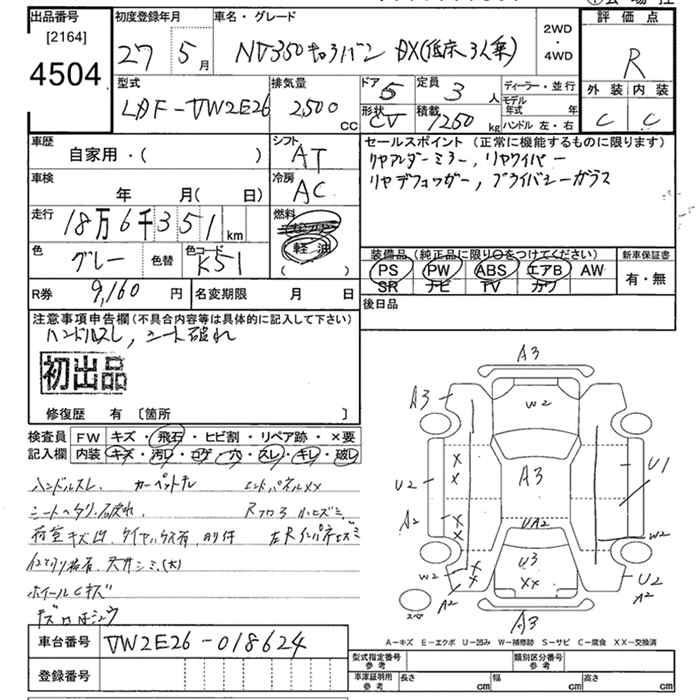 出品番号 初度登録年月 車名・グレード 評価点
[2164]
4504
27 5月 NV350キャラバン DX(低床 3人乗) 2WD・4WD R
型式 排気量 ドア 5 定員 3人 ディーラー・並行 外装 内装
LDF-VW2E26 2,500cc 形状 CV 積載 1250kg モデル年式 年 C C
ハンドル 左・右
車歴 自家用・( ) シフト AT セールスポイント(正常に機能するものに限ります)
車検 年 月( 日) 冷房 AC リヤアンダーミラー, リヤワイパー
リヤデフォッガー, プライバシーガラス
走行 18万6千351km 燃料
軽油
( )
色 グレー 色替 色コード K51 装備品(純正品に限り○をつけてください) 新車保証書
PS PW ABS エアB AW 有・無
SR ナビ TV カワ
R券 9,160円 名変期限 月 日 後日品
注意事項申告欄(不具合内容等は具体的に記入して下さい)
ハンドルスレ, シート破れ
初出品
修復歴 有 〔箇所 〕
検査員記入欄 FW キズ・飛石・ヒビ割・リペア跡・×要
内装 キズ・汚レ・コゲ・穴・スレ・キレ・破レ
ハンドルスレ, カーペットキレ
シートヘタリ・破れ
荷室キズ凹
天井シミ(大)
ホイールCキズ
A3
A3 W2
X X U2 A3 U1
A2 X X UA2
W2
W2 X X U3 XX U2
A2 A2
スペア A3
A-キズ E-エクボ U-凹み W-補修跡 S-サビ C-腐食 XX-交換済
車台番号 VW2E26-018624
登録番号
型式指定番号 参考 類別区分番号 参考
車庫証明用 参考 長さ cm 幅 cm 高さ cm